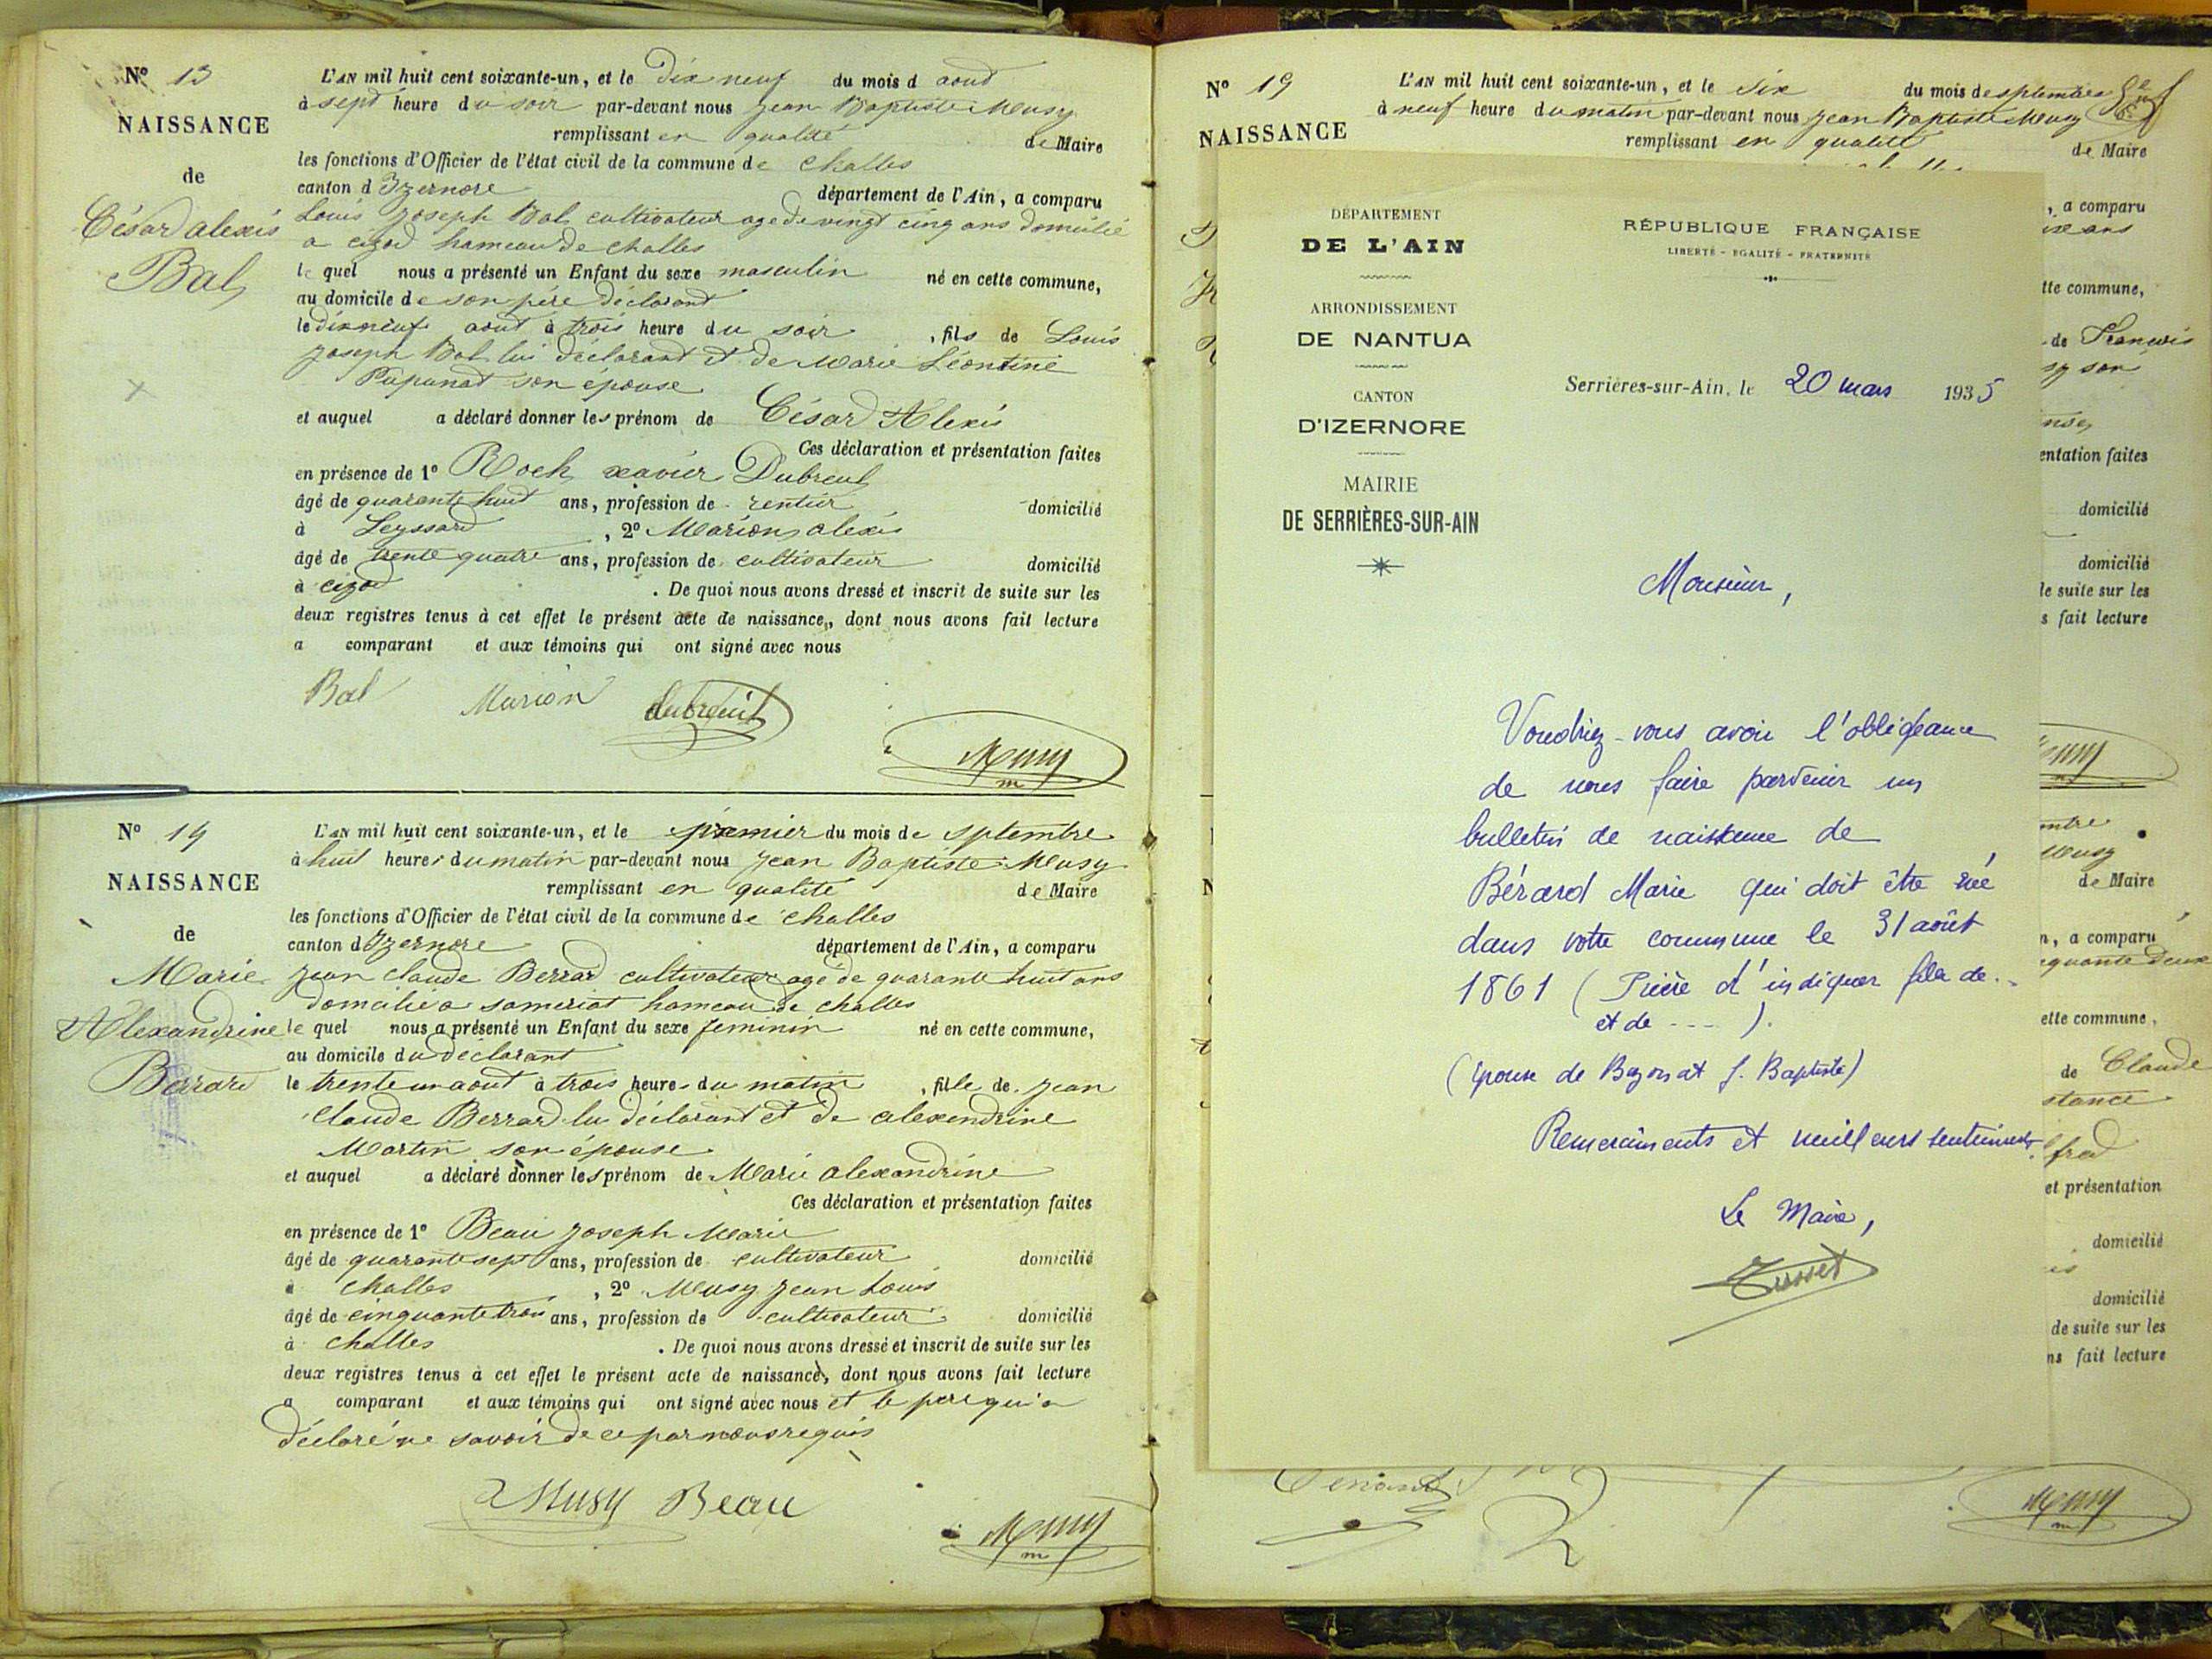 N° 13
NAISSANCE
de
César alexis
Bal
L'AN mil huit cent soixante-un, et le dix neuf du mois d aout
à sept heure du soir par-devant nous jean Baptiste Musy
remplissant en qualité de Maire
les fonctions d'Officier de l'état civil de la commune de challes
canton d Izernore département de l'Ain, a comparu
Louis joseph Bal cultivateur age de vingt cinq ans domicilié
a cizod hameau de challes
le quel nous a présenté un Enfant du sexe masculin né en cette commune,
au domicile de son père déclarant
le dix neuf aout à trois heure du soir , fils de Louis
joseph Bal lui déclarant et de Marie Léontine
Pupunat son épouse
et auquel a déclaré donner les prénom de César Alexis
Ces déclaration et présentation faites
en présence de 1° Roch xavier Dubreul
âgé de quarante huit ans, profession de rentier domicilié
à Leyssard , 2° Marion alexis
âgé de trente quatre ans, profession de cultivateur domicilié
à cizod . De quoi nous avons dressé et inscrit de suite sur les
deux registres tenus à cet effet le présent acte de naissance, dont nous avons fait lecture
a comparant et aux témoins qui ont signé avec nous
Bal Marion dubreuil
Musy
m
N° 14
NAISSANCE
de
Marie
Alexandrine
Berrard
L'AN mil huit cent soixante-un, et le premier du mois de sptembre
à huit heures du matin par-devant nous jean Baptiste Musy
remplissant en qualité de Maire
les fonctions d'Officier de l'état civil de la commune de challes
canton d Izernore département de l'Ain, a comparu
jean claude Berrard cultivateur agé de quarante huit ans
domicilié a someriat hameau de challes
le quel nous a présenté un Enfant du sexe feminin né en cette commune,
au domicile du déclarant
le trente un aout à trois heures du matin , fille de jean
claude Berrard lui déclarant et de alexendrine
Martin son épouse
et auquel a déclaré donner les prénom de Marie alexandrine
Ces déclaration et présentation faites
en présence de 1° Beau joseph Marie
âgé de quarante sept ans, profession de cultivateur domicilié
à challes , 2° Musy jean Louis
âgé de cinquante trois ans, profession de cultivateur domicilié
à challes . De quoi nous avons dressé et inscrit de suite sur les
deux registres tenus à cet effet le présent acte de naissance, dont nous avons fait lecture
a comparant et aux témoins qui ont signé avec nous et le pere qui a
déclaré ne savoir de ce par nous requis
Musy Beau
Musy
m
N° 19
NAISSANCE
L'AN mil huit cent soixante-un, et le six du mois de sptembre
à neuf heure du matin par-devant nous jean Baptiste Musy
remplissant en qualité de Maire
DÉPARTEMENT
DE L'AIN
ARRONDISSEMENT
DE NANTUA
CANTON
D'IZERNORE
MAIRIE
DE SERRIÈRES-SUR-AIN
RÉPUBLIQUE FRANÇAISE
LIBERTÉ - EGALITÉ - FRATERNITÉ
Serrières-sur-Ain, le 20 mars 1935
Monsieur,
Voudriez-vous avoir l'obligeance
de nous faire parvenir un
bulletin de naissance de
Bérard Marie qui doit être née
dans votre commune le 31 août
1861 (Prière d'indiquer fille de...
et de ---).
(épouse de Bazonat J. Baptiste)
Remerciments et meilleurs sentiments.
Le Maire,
Tusset
, a comparu
ans
tte commune,
de Francois
sy son
entation faites
domicilié
domicilié
le suite sur les
s fait lecture
mbre
Musy
de Maire
n, a comparu
quante deux
ette commune,
de Claude
stance
fred
et présentation
domicilié
domicilié
de suite sur les
ns fait lecture
Musy
m